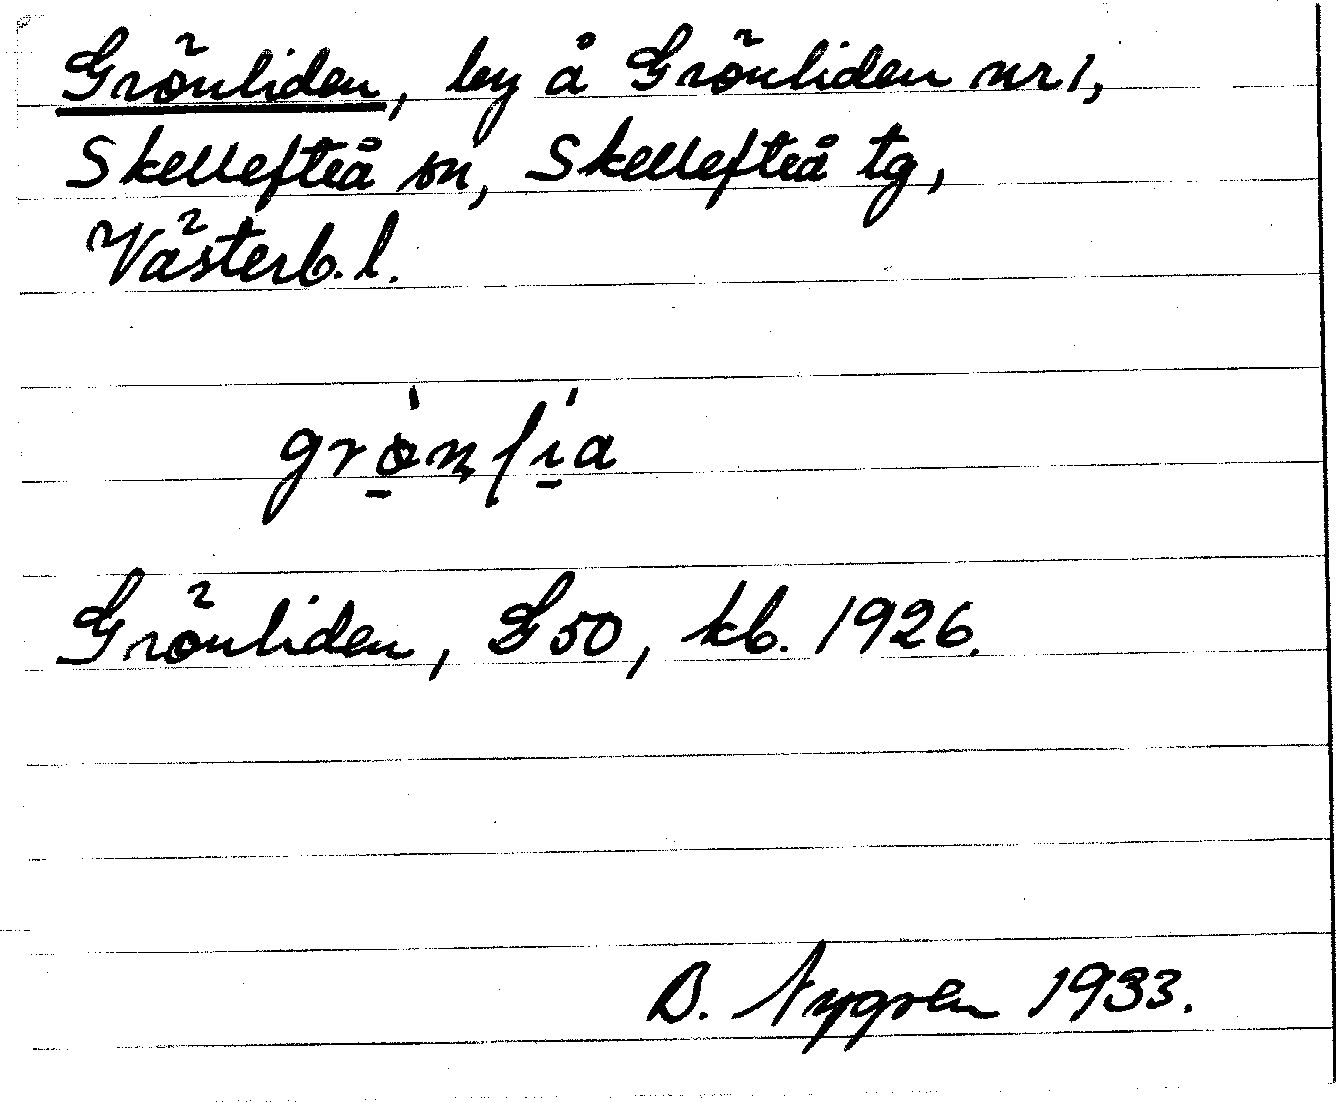 Grönliden, by å Grönliden nr 1,
Skellefteå sn, Skellefteå tg,
Västerb. l.
grø̱̀nlí̱a
Grönliden, G50, kb. 1926.
B. Nygren 1933.